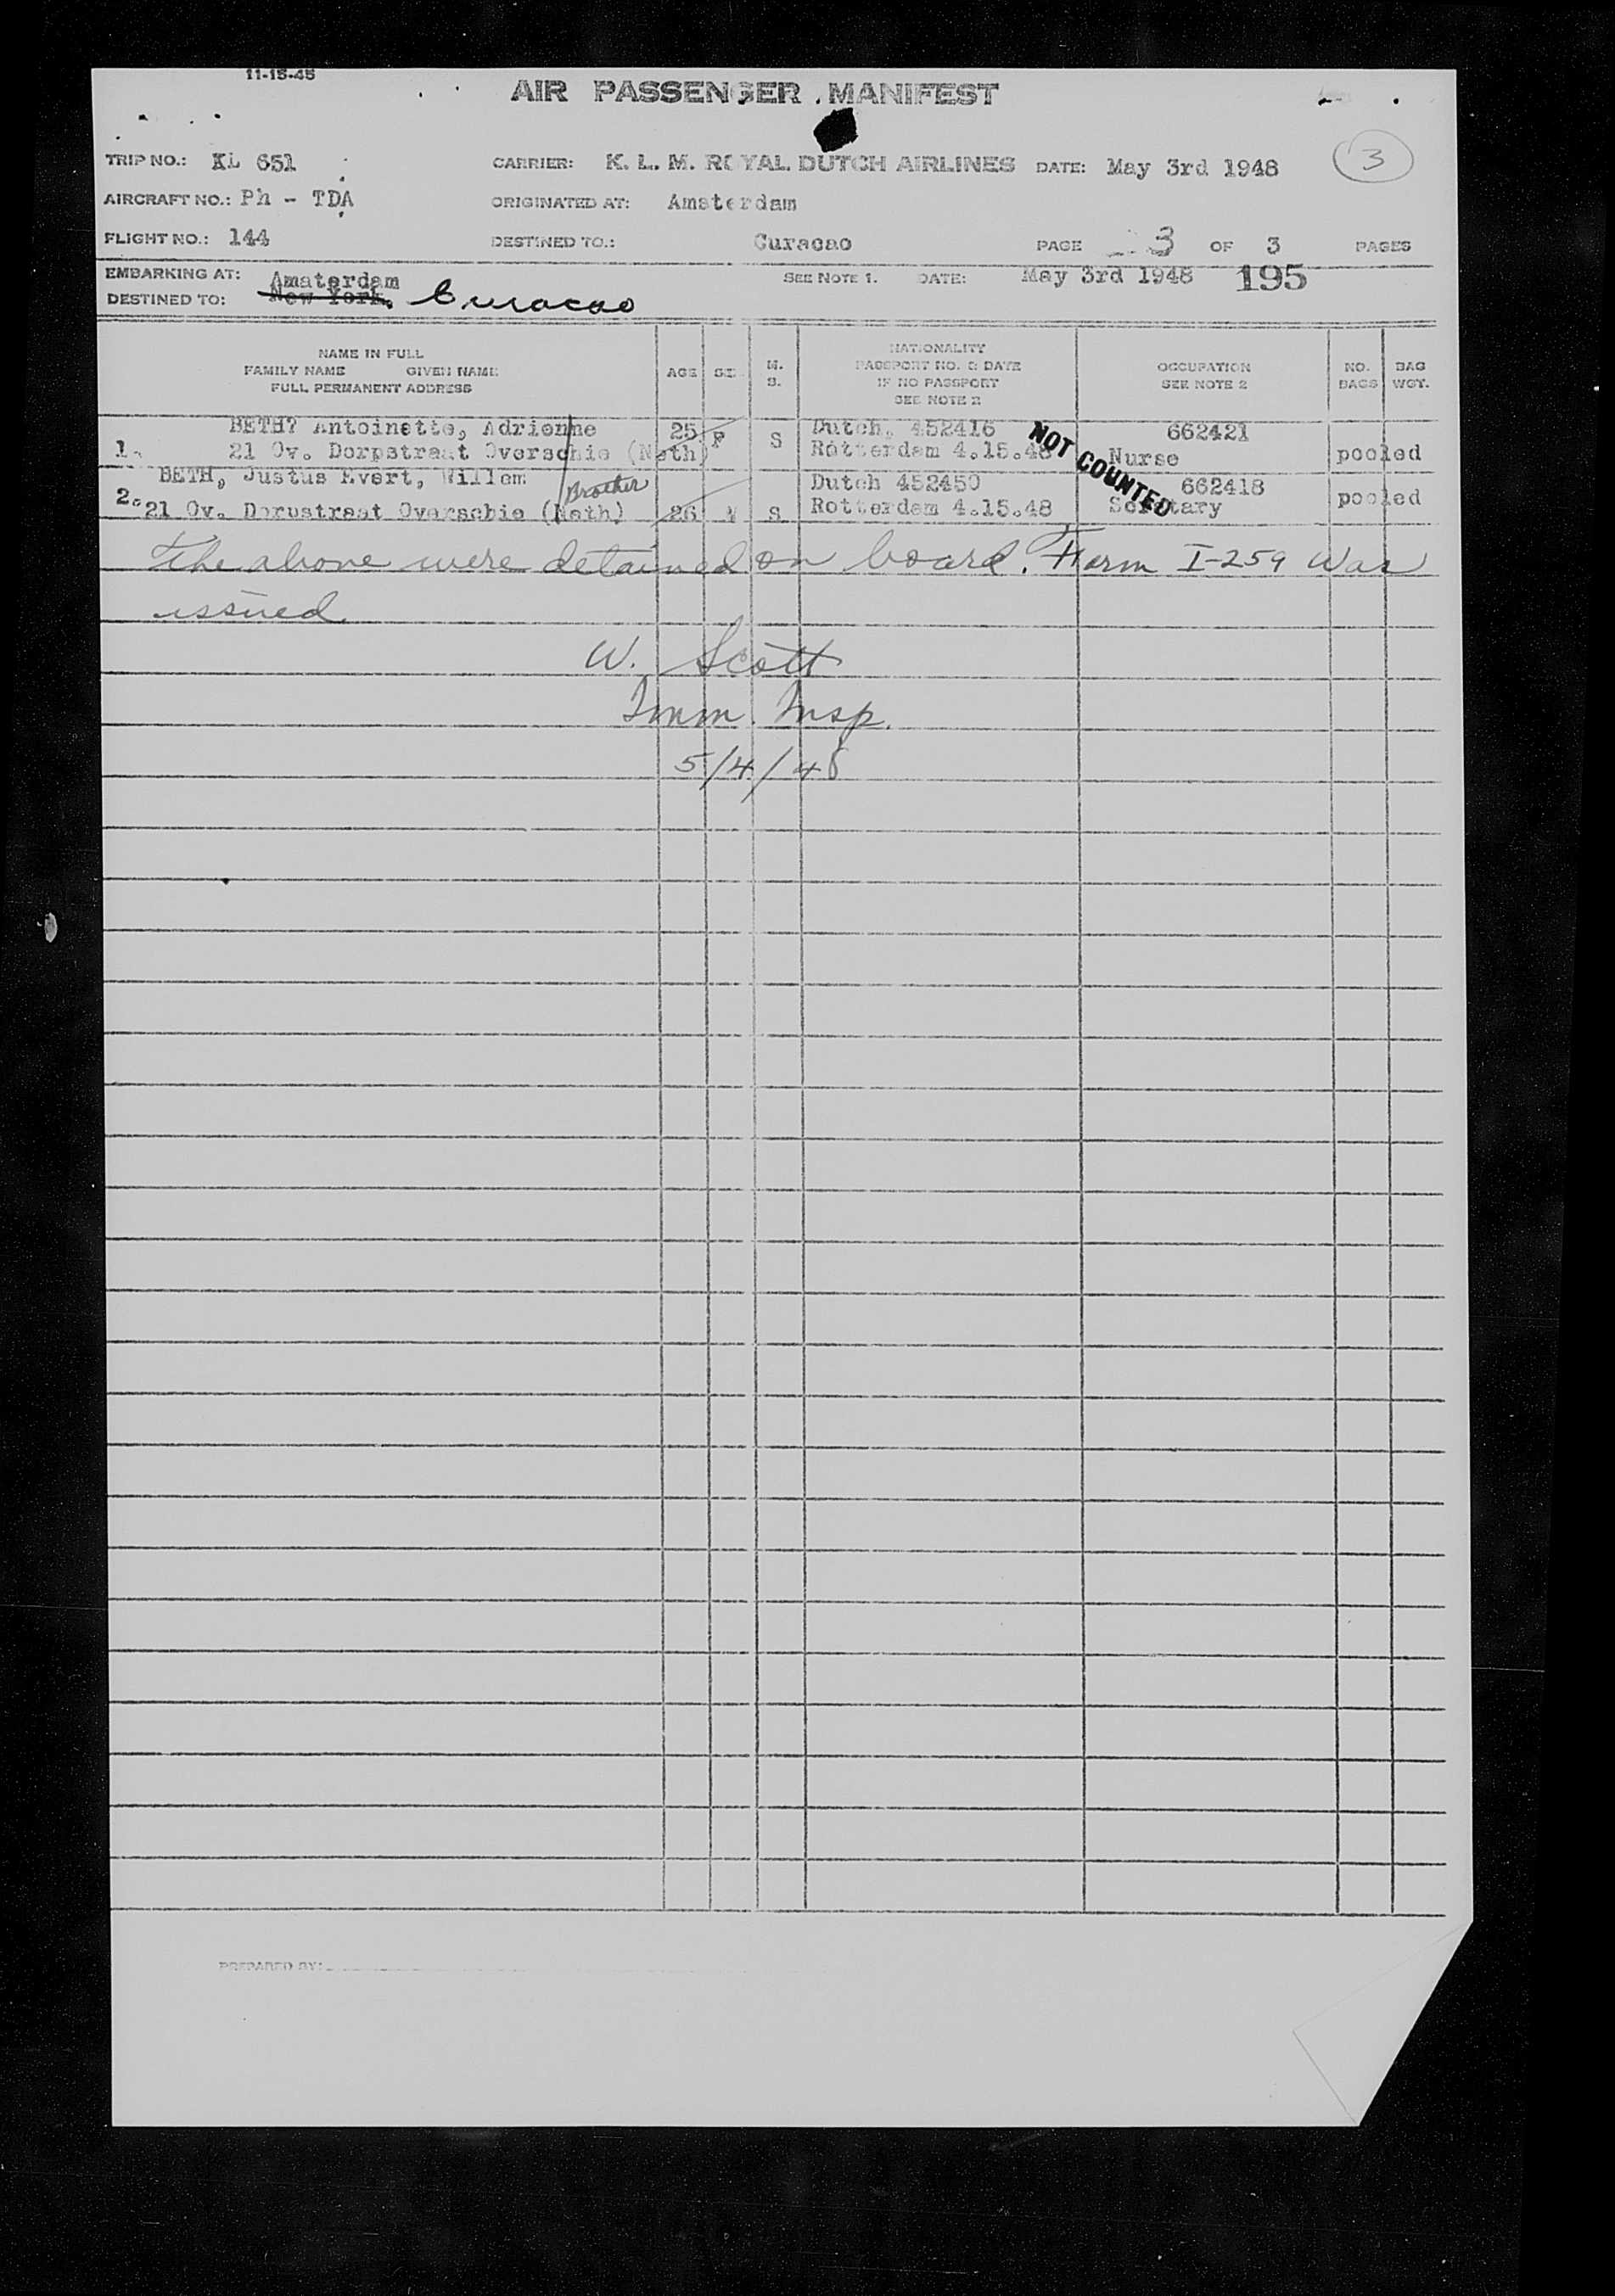 11-15-45
AIR PASSENGER MANIFEST
TRIP NO.: KL 651 CARRIER: K. L. M. ROYAL DUTCH AIRLINES DATE: May 3rd 1948 3
AIRCRAFT NO.: Ph - TDA ORIGINATED AT: Amsterdam
FLIGHT NO.: 144 DESTINED TO.: Curacao PAGE 3 OF 3 PAGES
EMBARKING AT: Amsterdam SEE NOTE 1. DATE: May 3rd 1948 195
DESTINED TO: New York. Curacao
NAME IN FULL
FAMILY NAME GIVEN NAME
FULL PERMANENT ADDRESS
AGE SEX M. S.
NATIONALITY
PASSPORT NO. & DATE
IF NO PASSPORT
SEE NOTE 2
OCCUPATION
SEE NOTE 2
NO. BAGS
BAG WGT.
BETH? Antoinette, Adrienne 25 F S Dutch, 452416 662421
1. 21 Ov. Dorpstraat Overschie (Neth) Rotterdam 4.15.48 Nurse pooled
NOT COUNTED
BETH, Justus Evert, Willem Brother Dutch 452450 662418
2. 21 Ov. Dorustraat Overschie (Neth) 26 M S Rotterdam 4.15.48 Secretary pooled
The above were detained on board. Form I-259 was
issued
W. Scott
Imm. Insp.
5/4/48
PREPARED BY: